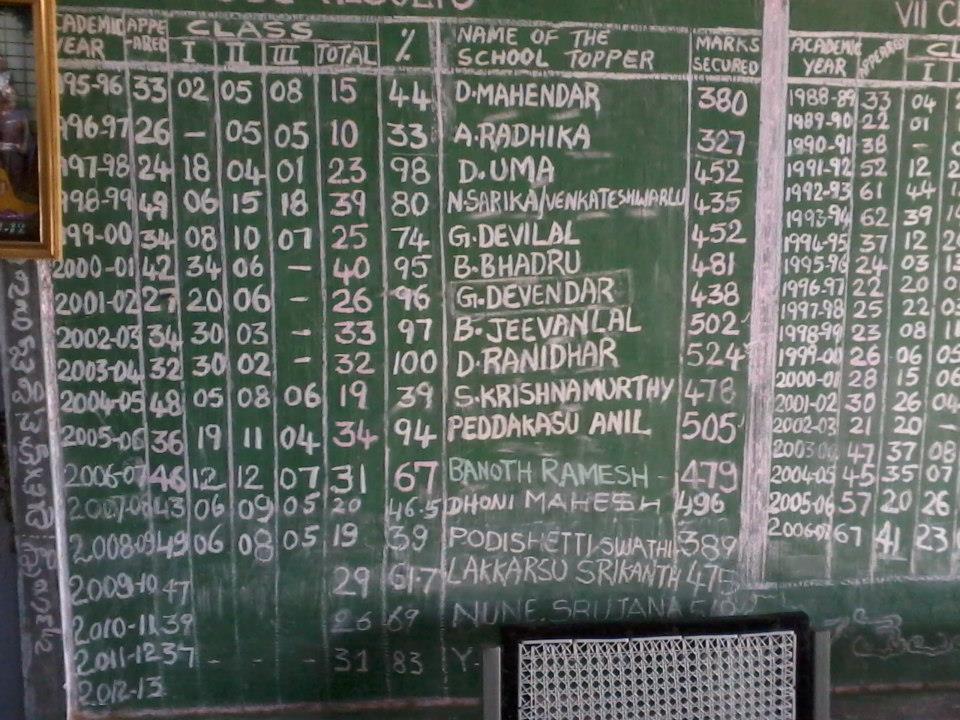 RESULTS
CADEMIC YEAR APPE-ARED CLASS I II III TOTAL % NAME OF THE SCHOOL TOPPER MARKS SECURED
95-96 33 02 05 08 15 44 D.MAHENDAR 380
996-97 26 - 05 05 10 33 A.RADHIKA 327
997-98 24 18 04 01 23 98 D.UMA 452
998-99 49 06 15 18 39 80 N.SARIKA/VENKATESHWARLU 435
999-00 34 08 10 07 25 74 G.DEVILAL 452
2000-01 42 34 06 - 40 95 B.BHADRU 481
2001-02 27 20 06 - 26 96 G.DEVENDAR 438
2002-03 34 30 03 - 33 97 B.JEEVANLAL 502
2003-04 32 30 02 - 32 100 D.RANIDHAR 524
2004-05 48 05 08 06 19 39 S.KRISHNAMURTHY 478
2005-06 36 19 11 04 34 94 PEDDAKASU ANIL 505
2006-07 46 12 12 07 31 67 BANOTH RAMESH 479
2007-08 43 06 09 05 20 46.5 DHONI MAHESH 496
2008-09 49 06 08 05 19 39 PODISHETTI SWATHI 389
2009-10 47 29 61.7 LAKKARSU SRIKANTH 475
2010-11 39 26 69 NUNE.SRUJANA
2011-12 37 - - - 31 83 Y.
2012-13
VII C
ACADEMIC YEAR APPEARED CL I
1988-89 33 04
1989-90 22 01
1990-91 38 -
1991-92 52 12 2
1992-93 61 44
1993-94 62 39
1994-95 37 12 20
1995-96 24 03 13
1996-97 22 20 0
1997-98 25 22 03
1998-99 23 08 11
1999-00 26 06 05
2000-01 28 15 06
2001-02 30 26 04
2002-03 21 20 -
47 37 08
2004-05 45 35 07
2005-06 57 20 26
2006-07 67 41 23